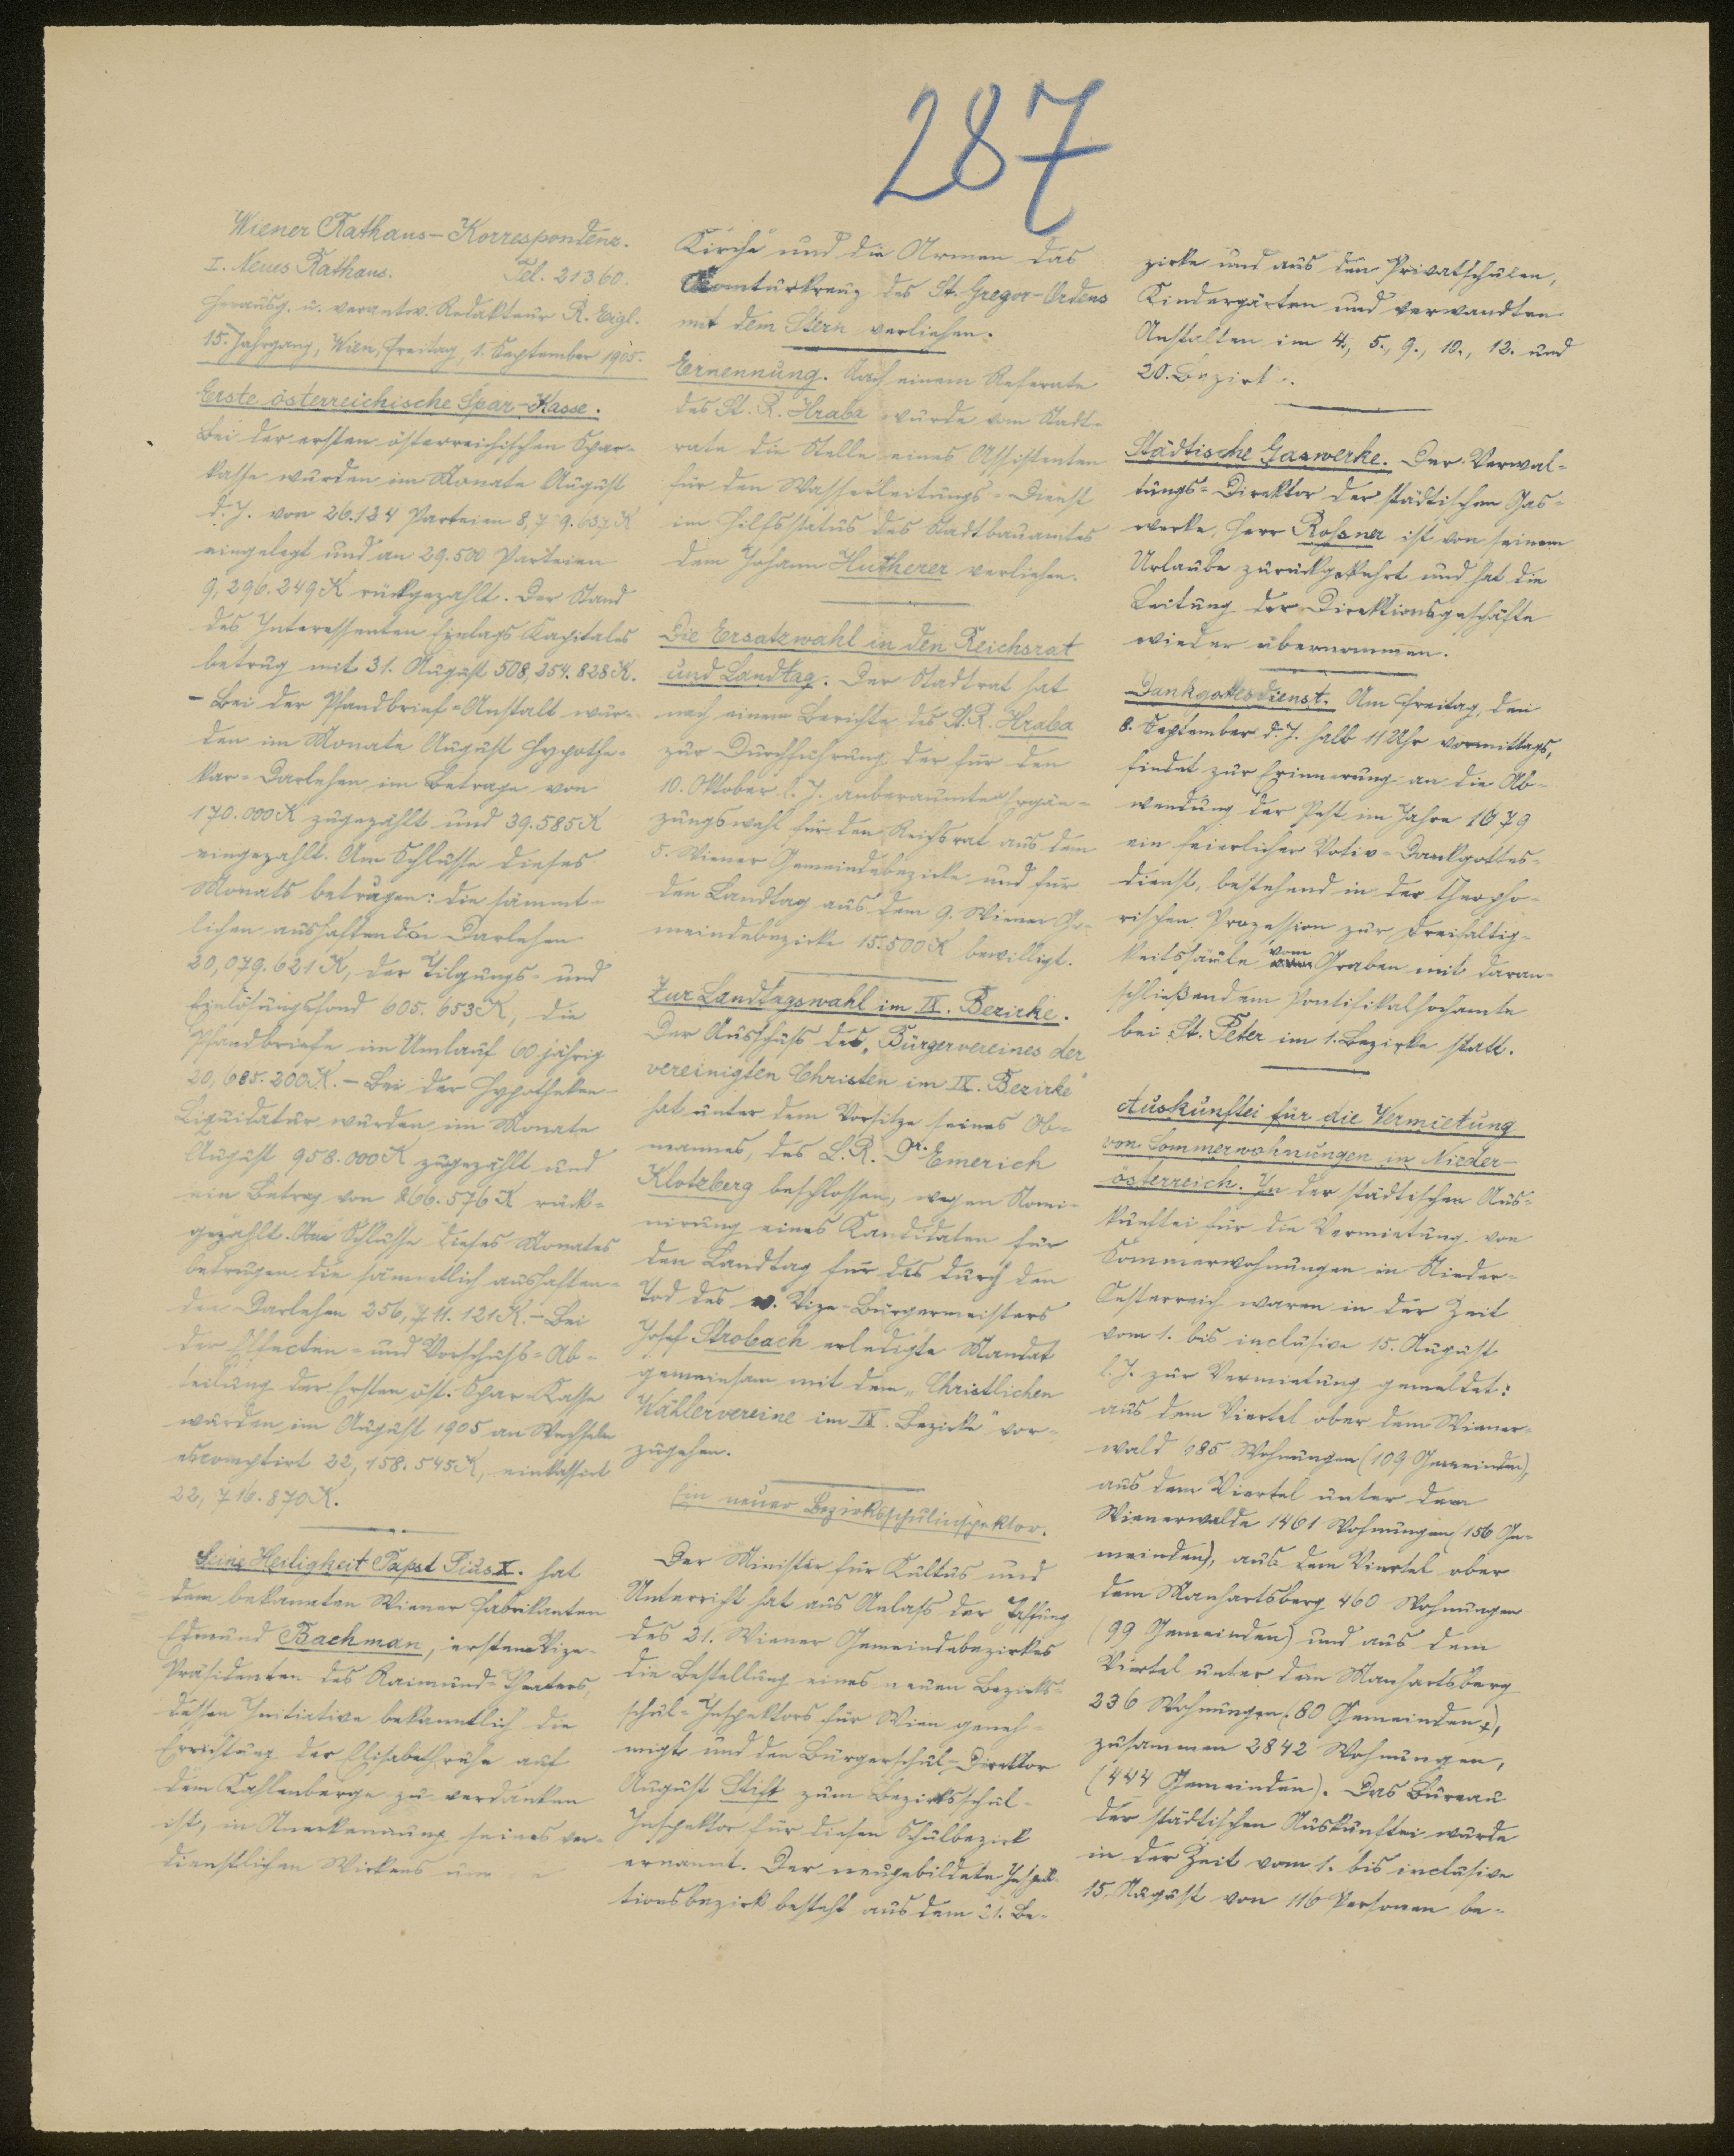 287
Wiener Rathaus-Korrespondenz.
I. Neues Rathaus. Tel. 21360.
Herausg. u. verantw. Redakteur R. Eigl.
15. Jahrgang, Wien, Freitag, 1. September 1905.
Erste österreichische Spar-Kasse.
Bei der ersten österreichischen Spar-
kasse wurden im Monate August
d. J. von 26.134 Parteien
eingelegt und an 29.500 Parteien
9,296.249 K rückgezahlt. Der Stand
des Interessenten Einlags Kapitales
betrug mit 31. August 508,254.828 K.
- Bei der Pfandbrief-Anstalt wur-
den im Monate August Hypothe-
kar-Darlehen im Betrage von
170.000 K zugezählt und 39.585 K
eingezahlt. Am Schlusse dieses
Monats betrugen: die sämmt-
lichen aushaftenden Darlehen
20,079.621 K, der Tilgungs- und
Einlösungsfond 605.653 K, die
Pfandbriefe im Umlauf 60 jährig
20,685.200 K. - Bei der Hypotheken-
Liquidatur wurden im Monate
August 958.000 K zugezählt und
ein Betrag von 266.576 K rück-
gezahlt. Am Schlusse dieses Monates
betrugen die sämmtlich aushaften-
den Darlehen 256,711.121 K. - Bei
der Effecten- und Vorschuß-Ab-
teilung der Ersten öst. Spar-Kasse
wurden im August 1905 an Wechseln
escomptirt 22,158.545 K, einkassirt
22,716.870 K.
Seine Heiligkeit Papst Pius X. hat
dem bekannten Wiener Fabrikanten
Edmund Bachman, erstem Vize-
Präsidenten des Raimund-Theaters,
dessen Initiative bekanntlich die
Errichtung der Elisabethruhe auf
dem Kahlenberge zu verdanken
ist, in Anerkennung seines ver-
dienstlichen Wirkens um
Kirche und die Armen das
Komturkreuz des St. Gregor-Ordens
mit dem Stern verliehen.
Ernennung. Nach einem Referate
des St. R. Hraba wurde vom Stadt-
rate die Stelle eines Assistenten
für den Wasserleitungs-Dienst
im Hilfsstatus des Stadtbauamtes
dem Johann Hutherer verliehen.
Die Ersatzwahl in den Reichsrat
und Landtag. Der Stadtrat hat
nach einem Berichte des St. R. Hraba
zur Durchführung der für den
10. Oktober l. J. anberaumten Ergän-
zungswahl für den Reichsrat aus dem
5. Wiener Gemeindebezirke und für
den Landtag aus dem 9. Wiener Ge-
meindebezirke 15.500 K bewilligt.
Zur Landtagswahl im IX. Bezirke.
Der Ausschuß des „Bürgervereines der
vereinigten Christen im IX. Bezirke"
hat unter dem Vorsitze seines Ob-
mannes, des L. R. Dr. Emerich
Klotzberg beschlossen, wegen Nomi-
nirung eines Kandidaten für
den Landtag für das durch den
Tod des v. Vize-Bürgermeisters
Josef Strobach erledigte Mandat
gemeinsam mit dem „Christlichen
Wählervereine im IX. Bezirke" vor-
zugehen.
Ein neuer Bezirksschulinspektor.
Der Minister für Kultus und
Unterricht hat aus Anlaß der Schaffung
des 21. Wiener Gemeindebezirkes
die Bestellung eines neuen Bezirks-
schul-Inspektors für Wien geneh-
migt und den Bürgerschul-Direktor
August Stift zum Bezirksschul-
Inspektor für diesen Schulbezirk
ernannt. Der neugebildete Inspek-
tionsbezirk besteht aus dem 21. Be-
zirke und aus den Privatschulen,
Kindergärten und verwandten
Anstalten im 4., 5., 9., 10., 12. und
20. Bezirk.
Städtische Gaswerke. Der Verwal-
tungs-Direktor der städtischen Gas-
werke, Herr Roßner ist von seinem
Urlaube zurückgekehrt und hat die
Leitung der Direktionsgeschäfte
wieder übernommen.
Dankgottesdienst. Am Freitag, den
8. September d. J. halb 11 Uhr vormittags,
findet zur Erinnerung an die Ab-
wendung der Pest im Jahre 1679
ein feierlicher Votiv-Dankgottes-
dienst, bestehend in der theopho-
rischen Prozession zur Dreifaltig-
keitssäule vom Graben mit daran-
schließendem Pontifikalhochamte
bei St. Peter im 1. Bezirke statt.
Auskunftei für die Vermietung
von Sommerwohnungen in Nieder-
österreich. In der städtischen Aus-
kunftei für die Vermietung von
Sommerwohnungen in Nieder-
Oesterreich waren in der Zeit
vom 1. bis inclusive 15. August
l. J. zur Vermietung gemeldet:
aus dem Viertel ober dem Wiener-
wald 685 Wohnungen (109 Gemeinden),
aus dem Viertel unter dem
Wienerwalde 1461 Wohnungen (156 Ge-
meinden), aus dem Viertel ober
dem Manhartsberg 460 Wohnungen
(99 Gemeinden) und aus dem
Viertel unter dem Manhartsberg
236 Wohnungen (80 Gemeinden),
zusammen 2842 Wohnungen,
(444 Gemeinden). Das Bureau
der städtischen Auskunftei wurde
in der Zeit vom 1. bis inclusive
15. August von 116 Personen be-